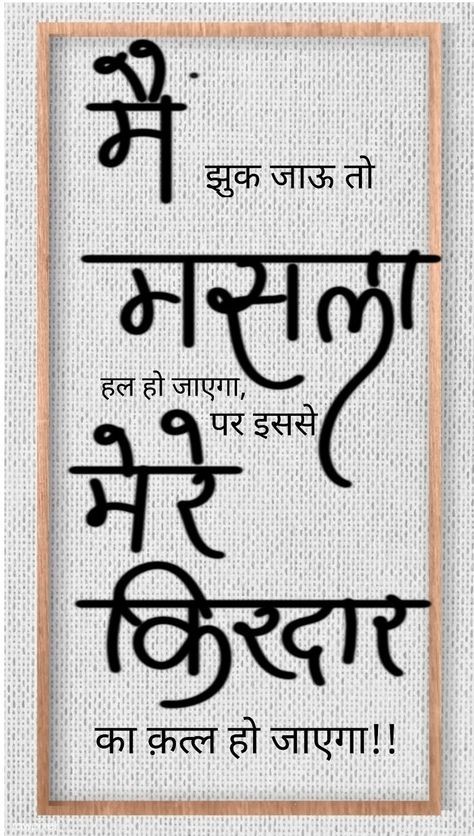 मैं
झुक जाऊ तो
मसला
हल हो जाएगा,
पर इससे
मेरे
किरदार
का क़त्ल हो जाएगा!!